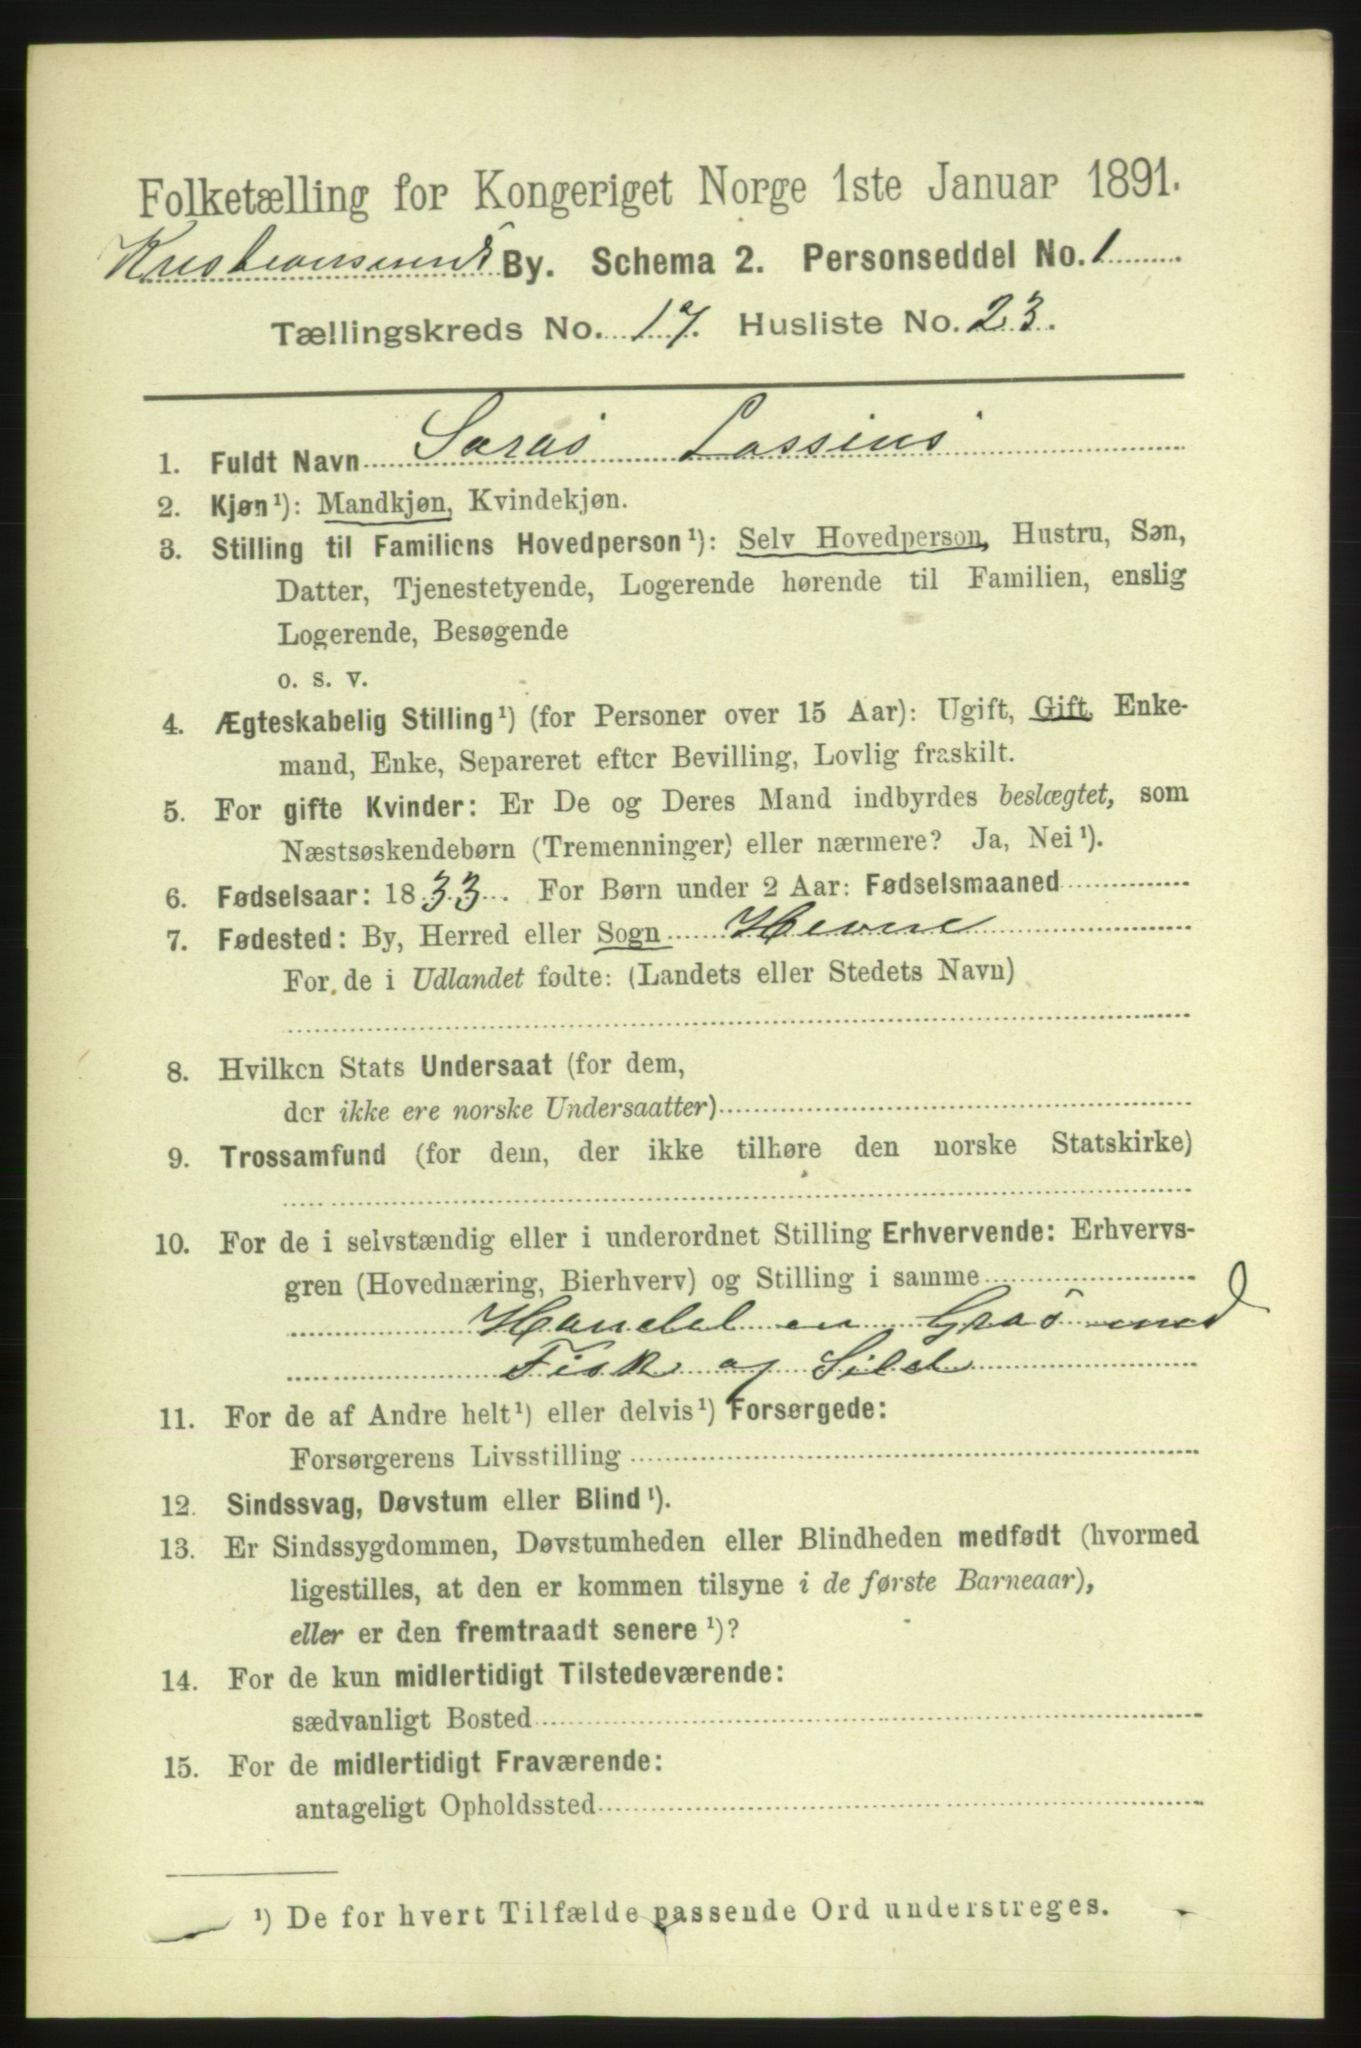 Folketælling for Kongeriget Norge 1ste Januar 1891.
Kristianssund By. Schema 2. Personseddel No. 1
Tællingskreds No. 17. Husliste No. 23.
1. Fuldt Navn Lossius
2. Kjøn¹): Mandkjøn, Kvindekjøn.
3. Stilling til Familiens Hovedperson¹): Selv Hovedperson, Hustru, Søn,
Datter, Tjenestetyende, Logerende hørende til Familien, enslig
Logerende, Besøgende
o. s. v.
4. Ægteskabelig Stilling¹) (for Personer over 15 Aar): Ugift, Gift, Enke-
mand, Enke, Separeret efter Bevilling, Lovlig fraskilt.
5. For gifte Kvinder: Er De og Deres Mand indbyrdes beslægtet, som
Næstsøskendebørn (Tremenninger) eller nærmere? Ja, Nei¹).
6. Fødselsaar: 1833. For Børn under 2 Aar: Fødselsmaaned
7. Fødested: By, Herred eller Sogn Hevne
For de i Udlandet fødte: (Landets eller Stedets Navn)
8. Hvilken Stats Undersaat (for dem,
der ikke ere norske Undersaatter)
9. Trossamfund (for dem, der ikke tilhøre den norske Statskirke)
10. For de i selvstændig eller i underordnet Stilling Erhvervende: Erhvervs-
gren (Hovednæring, Bierhverv) og Stilling i samme
Handel en Gros med
Fisk og Sild
11. For de af Andre helt¹) eller delvis¹) Forsørgede:
Forsørgerens Livsstilling
12. Sindssvag, Døvstum eller Blind¹).
13. Er Sindssygdommen, Døvstumheden eller Blindheden medfødt (hvormed
ligestilles, at den er kommen tilsyne i de første Barneaar),
eller er den fremtraadt senere¹)?
14. For de kun midlertidigt Tilstedeværende:
sædvanligt Bosted
15. For de midlertidigt Fraværende:
antageligt Opholdssted
¹) De for hvert Tilfælde passende Ord understreges.